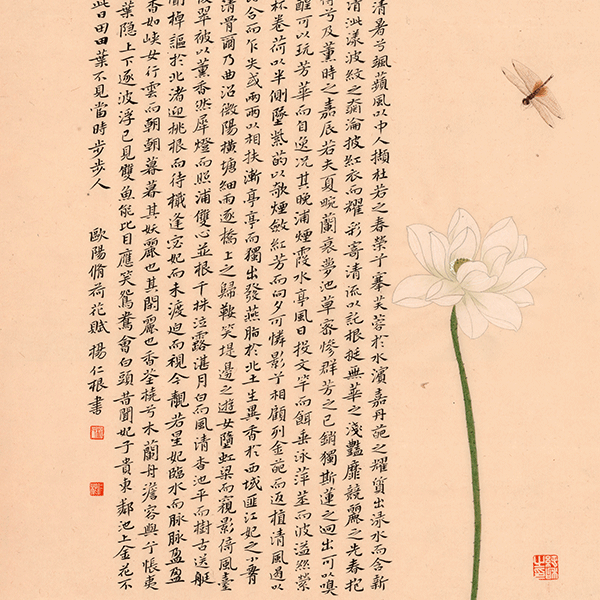 清暑兮颯蘋風以中人擷杜若之春榮兮搴芙蓉於水濱嘉丹葩之耀質出淥水而含新
清泚漾波紋之奫淪披紅衣而耀彩寄清流以託根挺無華之淺豔靡競麗之先春抱
芳兮及薰時之嘉辰若夫夏畹蘭衰夢池草密慘群芳之已銷獨斯蓮之迥出可以嗅
醒可以玩芳華而自逸況其晚浦煙霞水亭風日投文竿而餌垂泳萍莖而波溢絲縈
杯卷荷以半側墜紫菂以欹煙斂紅芳而向夕可憐影兮相顧列金葩而返植清風過以
比合而乍失或兩兩以相扶漸亭亭而獨出發燕脂於北土生異香於西域匯江妃之小脊
清骨爾乃曲沼微陽橫塘細雨逐橋上之歸鞍笑堤邊之遊女墮虹梁而窺影倚風臺
翠被以薰香然犀燈而照浦雙心並根千株泣露湛月白而風清香池平而樹古送艇
棹謳於北渚迎桃根而待檝逢宓妃而未渡迫而視今靚若星妃臨水而脉脉盈盈
香如峽女行雲而朝朝暮暮其妖麗也其閒麗也香荃橈兮木蘭舟澹容與兮悵夷
葉隱上下逐波浮已見雙魚能比目應笑鴛鴦會白頭昔聞妃子貴東鄰池上金花不
此日田田葉不見當時步步人
歐陽脩荷花賦 楊仁根書